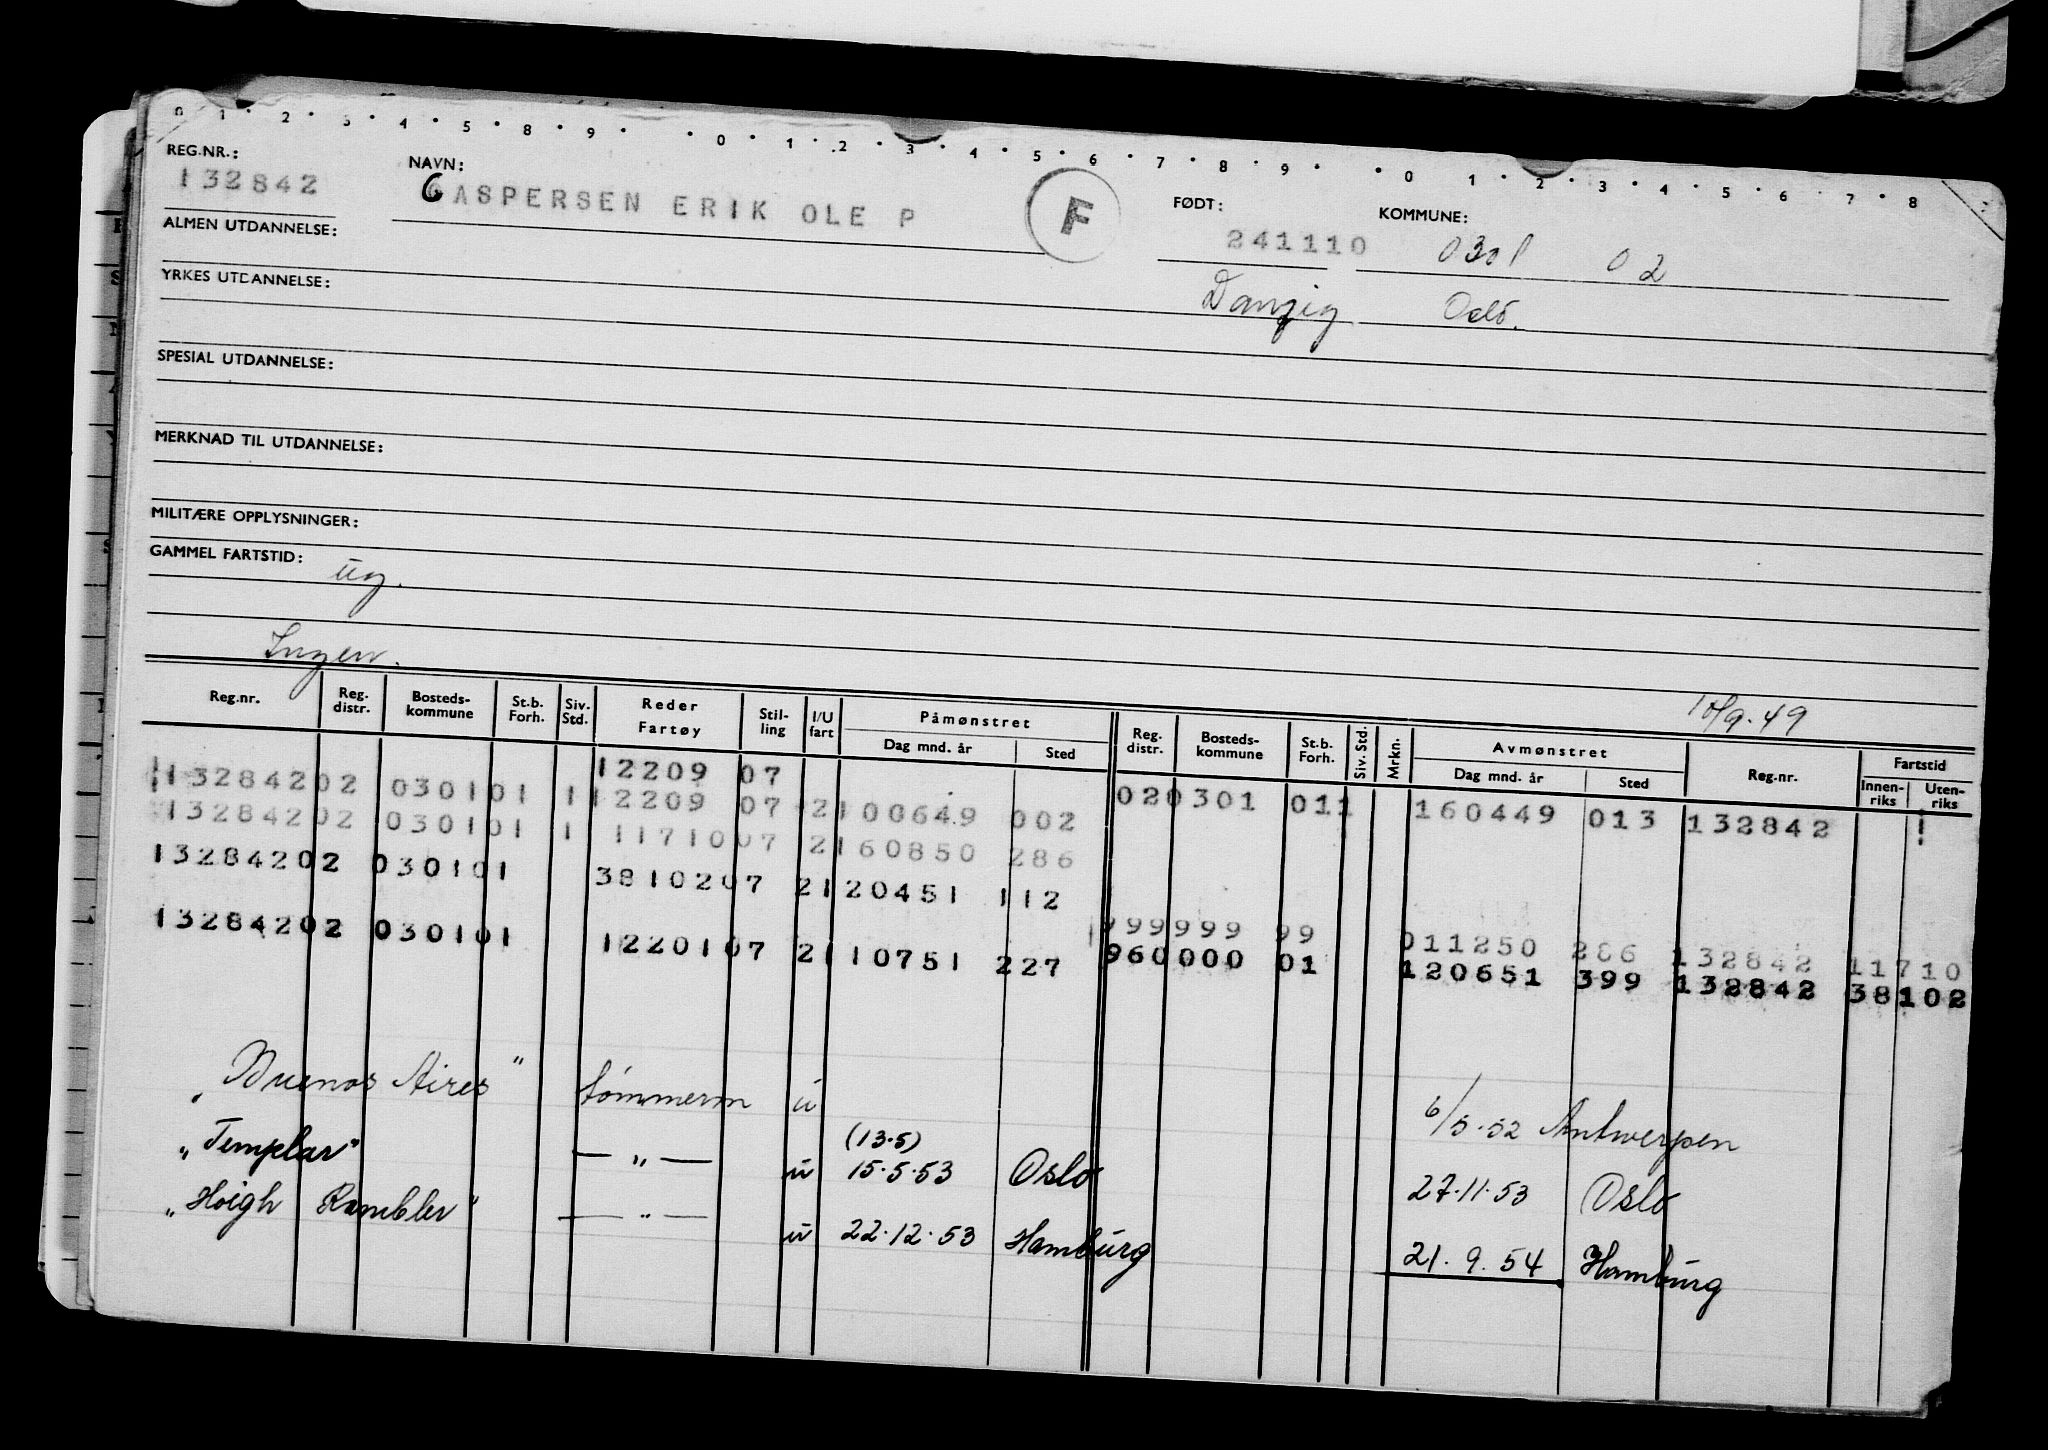 0 · 1 · 2 · 3 · 4 · 5 · 8 · 9 · · 0 · 1 · 2 · 3 · 4 · 5 · 6 · 7 · 8 · 9 · · 0 1 · 2 · 3 · 4 · 5 · 6 · 7 · 8
REG.NR.: NAVN: FØDT: KOMMUNE:
132842 CASPERSEN ERIK OLE P F 241110 0301 02
ALMEN UTDANNELSE:
Danzig. Oslo.
YRKES UTDANNELSE:
SPESIAL UTDANNELSE:
MERKNAD TIL UTDANNELSE:
MILITÆRE OPPLYSNINGER:
GAMMEL FARTSTID:
ug.
Ingen.
10/9.49
Reg.nr. Reg. distr. Bosteds- kommune St.b. Forh. Siv. Std. Reder Fartøy Stil- ling I/U fart Påmønstret Dag mnd. år Sted Reg. distr. Bosteds- kommune St.b. Forh. Siv. Std. Mrkn. Avmønstret Dag mnd. år Sted Reg.nr. Fartstid Innen- riks Uten- riks
12209 07 020301 011 160449 013 132842
13284202 030101 1 12209 07 2100649 002
13284202 030101 1 1171007 2160850 286
13284202 030101 3810207 2120451 112
999999 99 011250 286 132842 11710
13284202 030101 1220107 2110751 227 960000 01 120651 399 132842 38102
„Buenos Aires" tømmerm u 6/5.52 Antwerpen
„Templar" — „ — u (13.5) 15.5.53 Oslo 27.11.53 Oslo
„Høigh Rambler" — „ — u 22.12.53 Hamburg 21.9.54 Hamburg